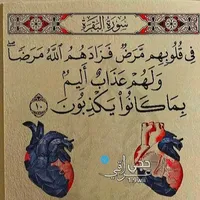 سُورَةُ البَقَرَة
فِي قُلُوبِهِم مَّرَضٌ فَزَادَهُمُ اللَّهُ مَرَضًا ۖ
وَلَهُمْ عَذَابٌ أَلِيمٌ
بِمَا كَانُوا يَكْذِبُونَ ١٠